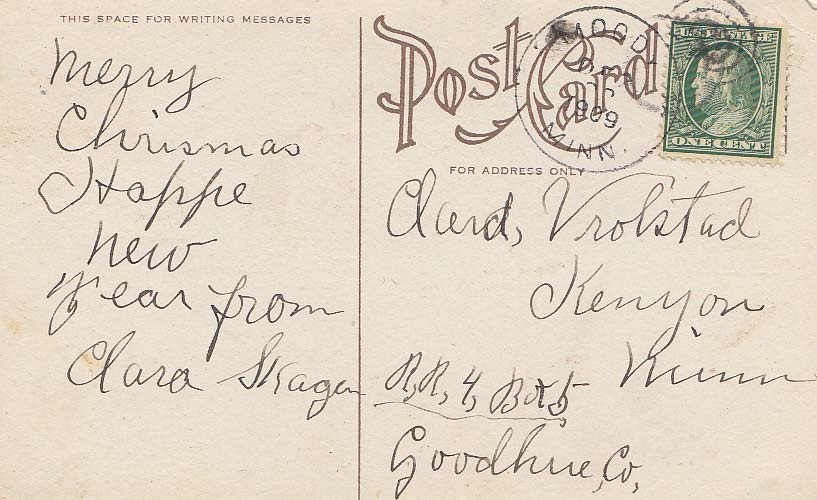 THIS SPACE FOR WRITING MESSAGES
Merry
Chrismas
Happe
new
year from
Clara Skagen
Post Card
1909
MINN.
ONE CENT
FOR ADDRESS ONLY
Vrolstad
Kenyon
Minn
R,R, 4, Box 5
Goodhue, Co,